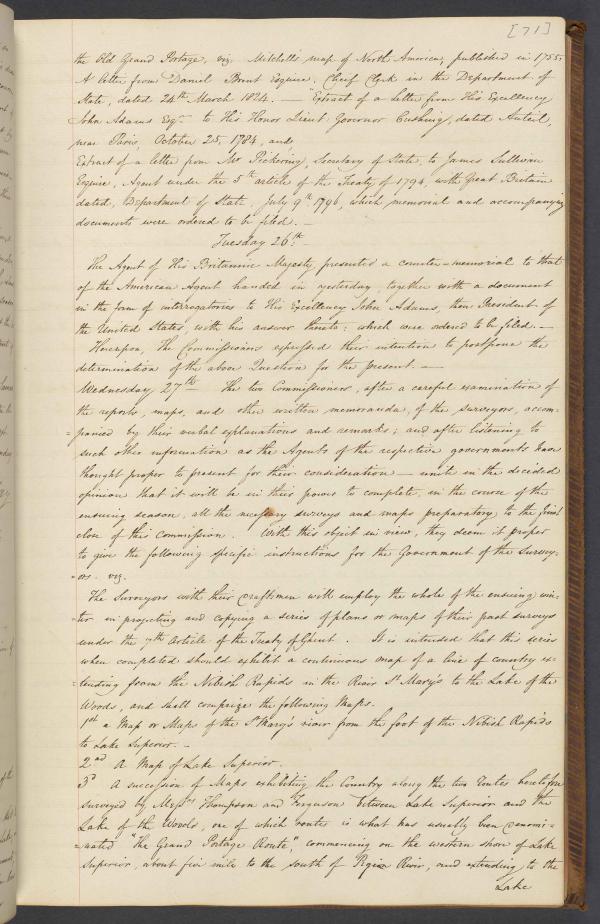 [71]
the Old Grand Portage, viz. Mitchell's map of North America, published in 1755;
A letter from Daniel Brent Esquire, Cheif Clerk in the Department of
State, dated 24th March 1824. — Extract of a letter from His Excellency
John Adams Esqr to His Honor Lieut Governor Cushing, dated Auteil,
near Paris, October 25, 1784, and
Extract of a letter from Mr Pickering, Secretary of State, to James Sullivan
Esquire, Agent under the 5th article of the Treaty of 1794, with Great Britain
dated, Department of State, July 9th 1796, which memorial and accompanying
documents were ordered to be filed. —
Tuesday 26th —
The Agent of His Britannic Majesty, presented a counter-memorial to that
of the American Agent handed in yesterday, together with a document
in the form of interrogatories to His Excellency John Adams, then President of
the United States, with his answer thereto: which were ordered to be filed. —
Hereupon, The Commissioners expressed their intention to postpone the
determination of the above Question for the present. —
Wednesday 27th — The two Commissioners, after a careful examination of
the reports, maps, and other written memoranda, of the surveyors, accom-
=panied by their verbal explanations and remarks; and after listening to
such other information as the Agents of the respective governments have
thought proper to present for their consideration — unite in the decided
opinion that it will be in their power to complete, in the course of the
ensuing season, all the necessary surveys and maps preparatory to the final
close of this commission. With this object in view, they deem it proper
to give the following specific instructions for the Government of the Survey-
=ors. viz.
The Surveyors with their draftsmen will employ the whole of the ensuing win-
=ter in projecting and copying a series of plans or maps of their past surveys
under the 7th Article of the Treaty of Ghent. It is intended that this series
when completed should exhibit a continuous map of a line of country ex-
=tending from the Nibish Rapids in the River St Mary's to the Lake of the
Woods, and shall comprize the following Maps.
1st a Map or Maps of the St Mary's river from the foot of the Nibish Rapids
to Lake Superior. —
2nd A Map of Lake Superior.
3d A succession of Maps exhibiting the Country along the two routes heretofore
surveyed by Messrs Thompson and Ferguson between Lake Superior and the
Lake of the Woods, one of which routes is what has usually been denomi-
=nated "The Grand Portage Route," commencing on the western shore of Lake
Superior, about five mile to the south of Pigeon River, and extending to the
Lake